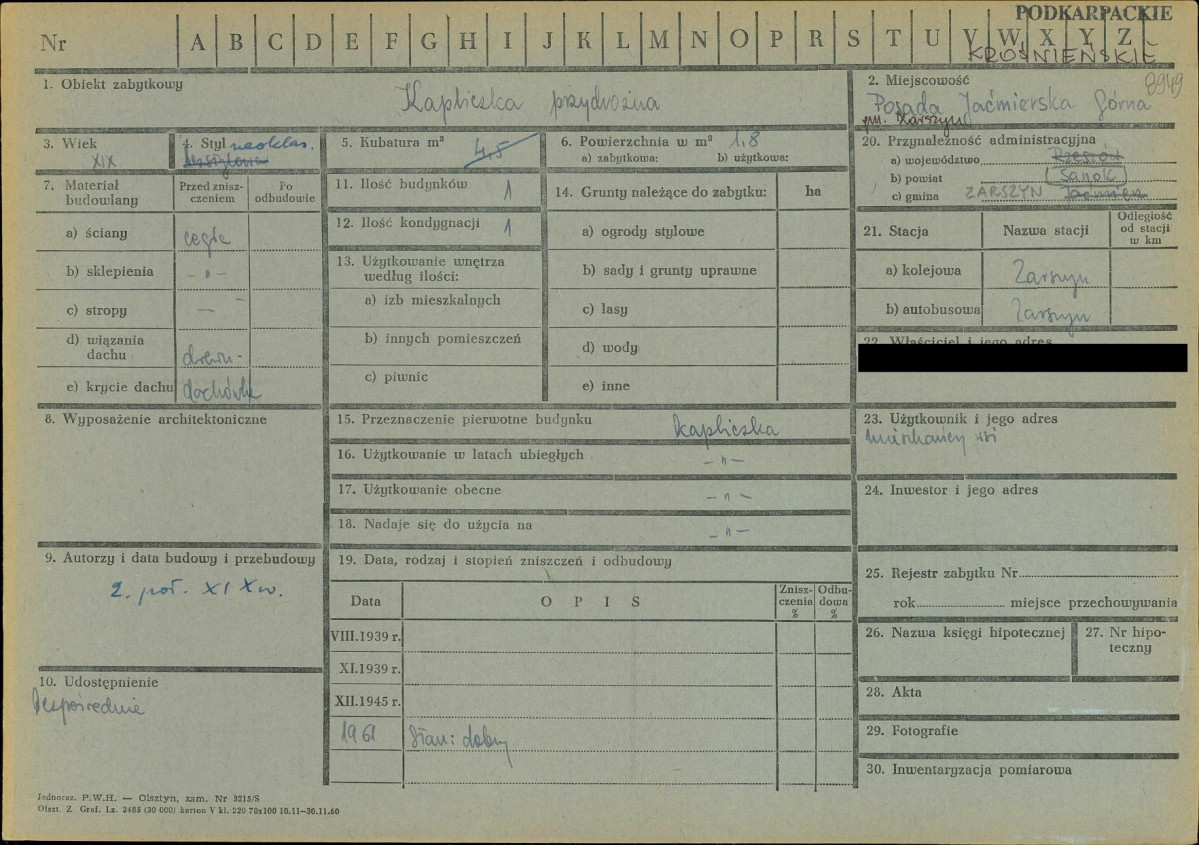 PODKARPACKIE
Nr A B C D E F G H I J K L M N O P R S T U V W X Y Z
KROŚNIEŃSKIE
8949
1. Obiekt zabytkowy
Kapliczka przydrożna
2. Miejscowość
Posada Jaćmierska Górna
gm. Zarszyn
3. Wiek
XIX
4. Styl neoklas.
bezstylowa
5. Kubatura m³
4,5
6. Powierzchnia w m² 1,8
a) zabytkowa: b) użytkowa:
20. Przynależność administracyjna
a) województwo Rzeszów
b) powiat Sanok
c) gmina ZARSZYN Jaćmierz
7. Materiał budowlany
Przed zniszczeniem
Po odbudowie
a) ściany cegła
b) sklepienia -"-
c) stropy —
d) wiązania dachu drewn-
e) krycie dachu dachówka
11. Ilość budynków 1
12. Ilość kondygnacji 1
13. Użytkowanie wnętrza według ilości:
a) izb mieszkalnych
b) innych pomieszczeń
c) piwnic
14. Grunty należące do zabytku: ha
a) ogrody stylowe
b) sady i grunty uprawne
c) lasy
d) wody
e) inne
21. Stacja Nazwa stacji Odległość od stacji w km
a) kolejowa Zarszyn
b) autobusowa Zarszyn
22. Właściciel i jego adres
8. Wyposażenie architektoniczne
15. Przeznaczenie pierwotne budynku kapliczka
16. Użytkowanie w latach ubiegłych -"-
17. Użytkowanie obecne -"-
18. Nadaje się do użycia na -"-
23. Użytkownik i jego adres
mieszkańcy wsi
24. Inwestor i jego adres
9. Autorzy i data budowy i przebudowy
2. poł. XIX w.
19. Data, rodzaj i stopień zniszczeń i odbudowy
Data OPIS Zniszczenia % Odbudowa %
VIII.1939 r.
XI.1939 r.
XII.1945 r.
1961 Stan: dobry
25. Rejestr zabytku Nr
rok miejsce przechowywania
26. Nazwa księgi hipotecznej
27. Nr hipoteczny
10. Udostępnienie
bezpośrednie
28. Akta
29. Fotografie
30. Inwentaryzacja pomiarowa
Jednoraz. P.W.H. — Olsztyn, zam. Nr 3215/S
Olszt. Z. Graf. Lz. 2485 (30 000) karton V kl. 220 70x100 10.11—30.11.60